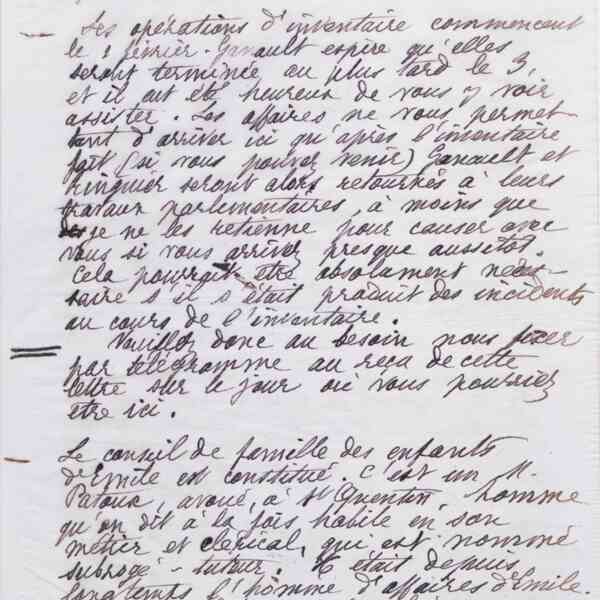 Les opérations d'inventaire commencent
le 1 février. Ganault espère qu'elles
seront terminée au plus tard le 3,
et il eut été heureux de vous y voir
assister. Les affaires ne vous permet-
tant d'arriver ici qu'après l'inventaire
fait (si vous pouvez venir) Ganault et
Ringuier seront alors retournés à leurs
travaux parlementaires, à moins que
je ne les retienne pour causer avec
vous si vous arrivez presque aussitot.
Cela pourrait etre absolument néces-
saire s'il s'était produit des incidents
au cours de l'inventaire.
Veuillez donc au besoin nous fixer
par télégramme au reçu de cette
lettre sur le jour où vous pourriez
etre ici.
Le conseil de famille des enfants
d'Emile est constitué. C'est un M.
Patoux, avoué, à St Quentin, homme
qu'on dit à la fois habile en son
métier et clérical, qui est nommé
subrogé-tuteur. Il était depuis
longtemps l'homme d'affaires d'Emile.